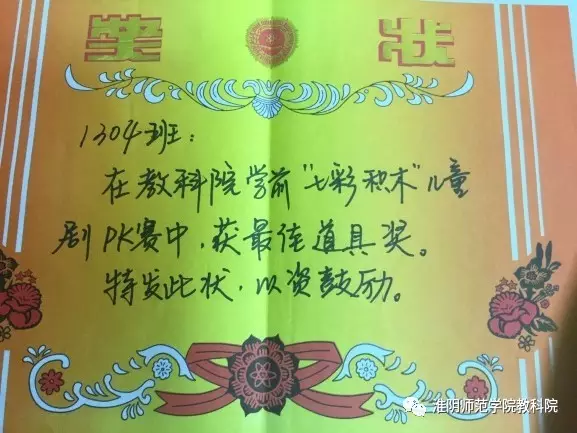 奖状
1304班：
在教科院学前"七彩积木"儿童
剧PK赛中，获最佳道具奖。
特发此状，以资鼓励。
淮阴师范学院教科院